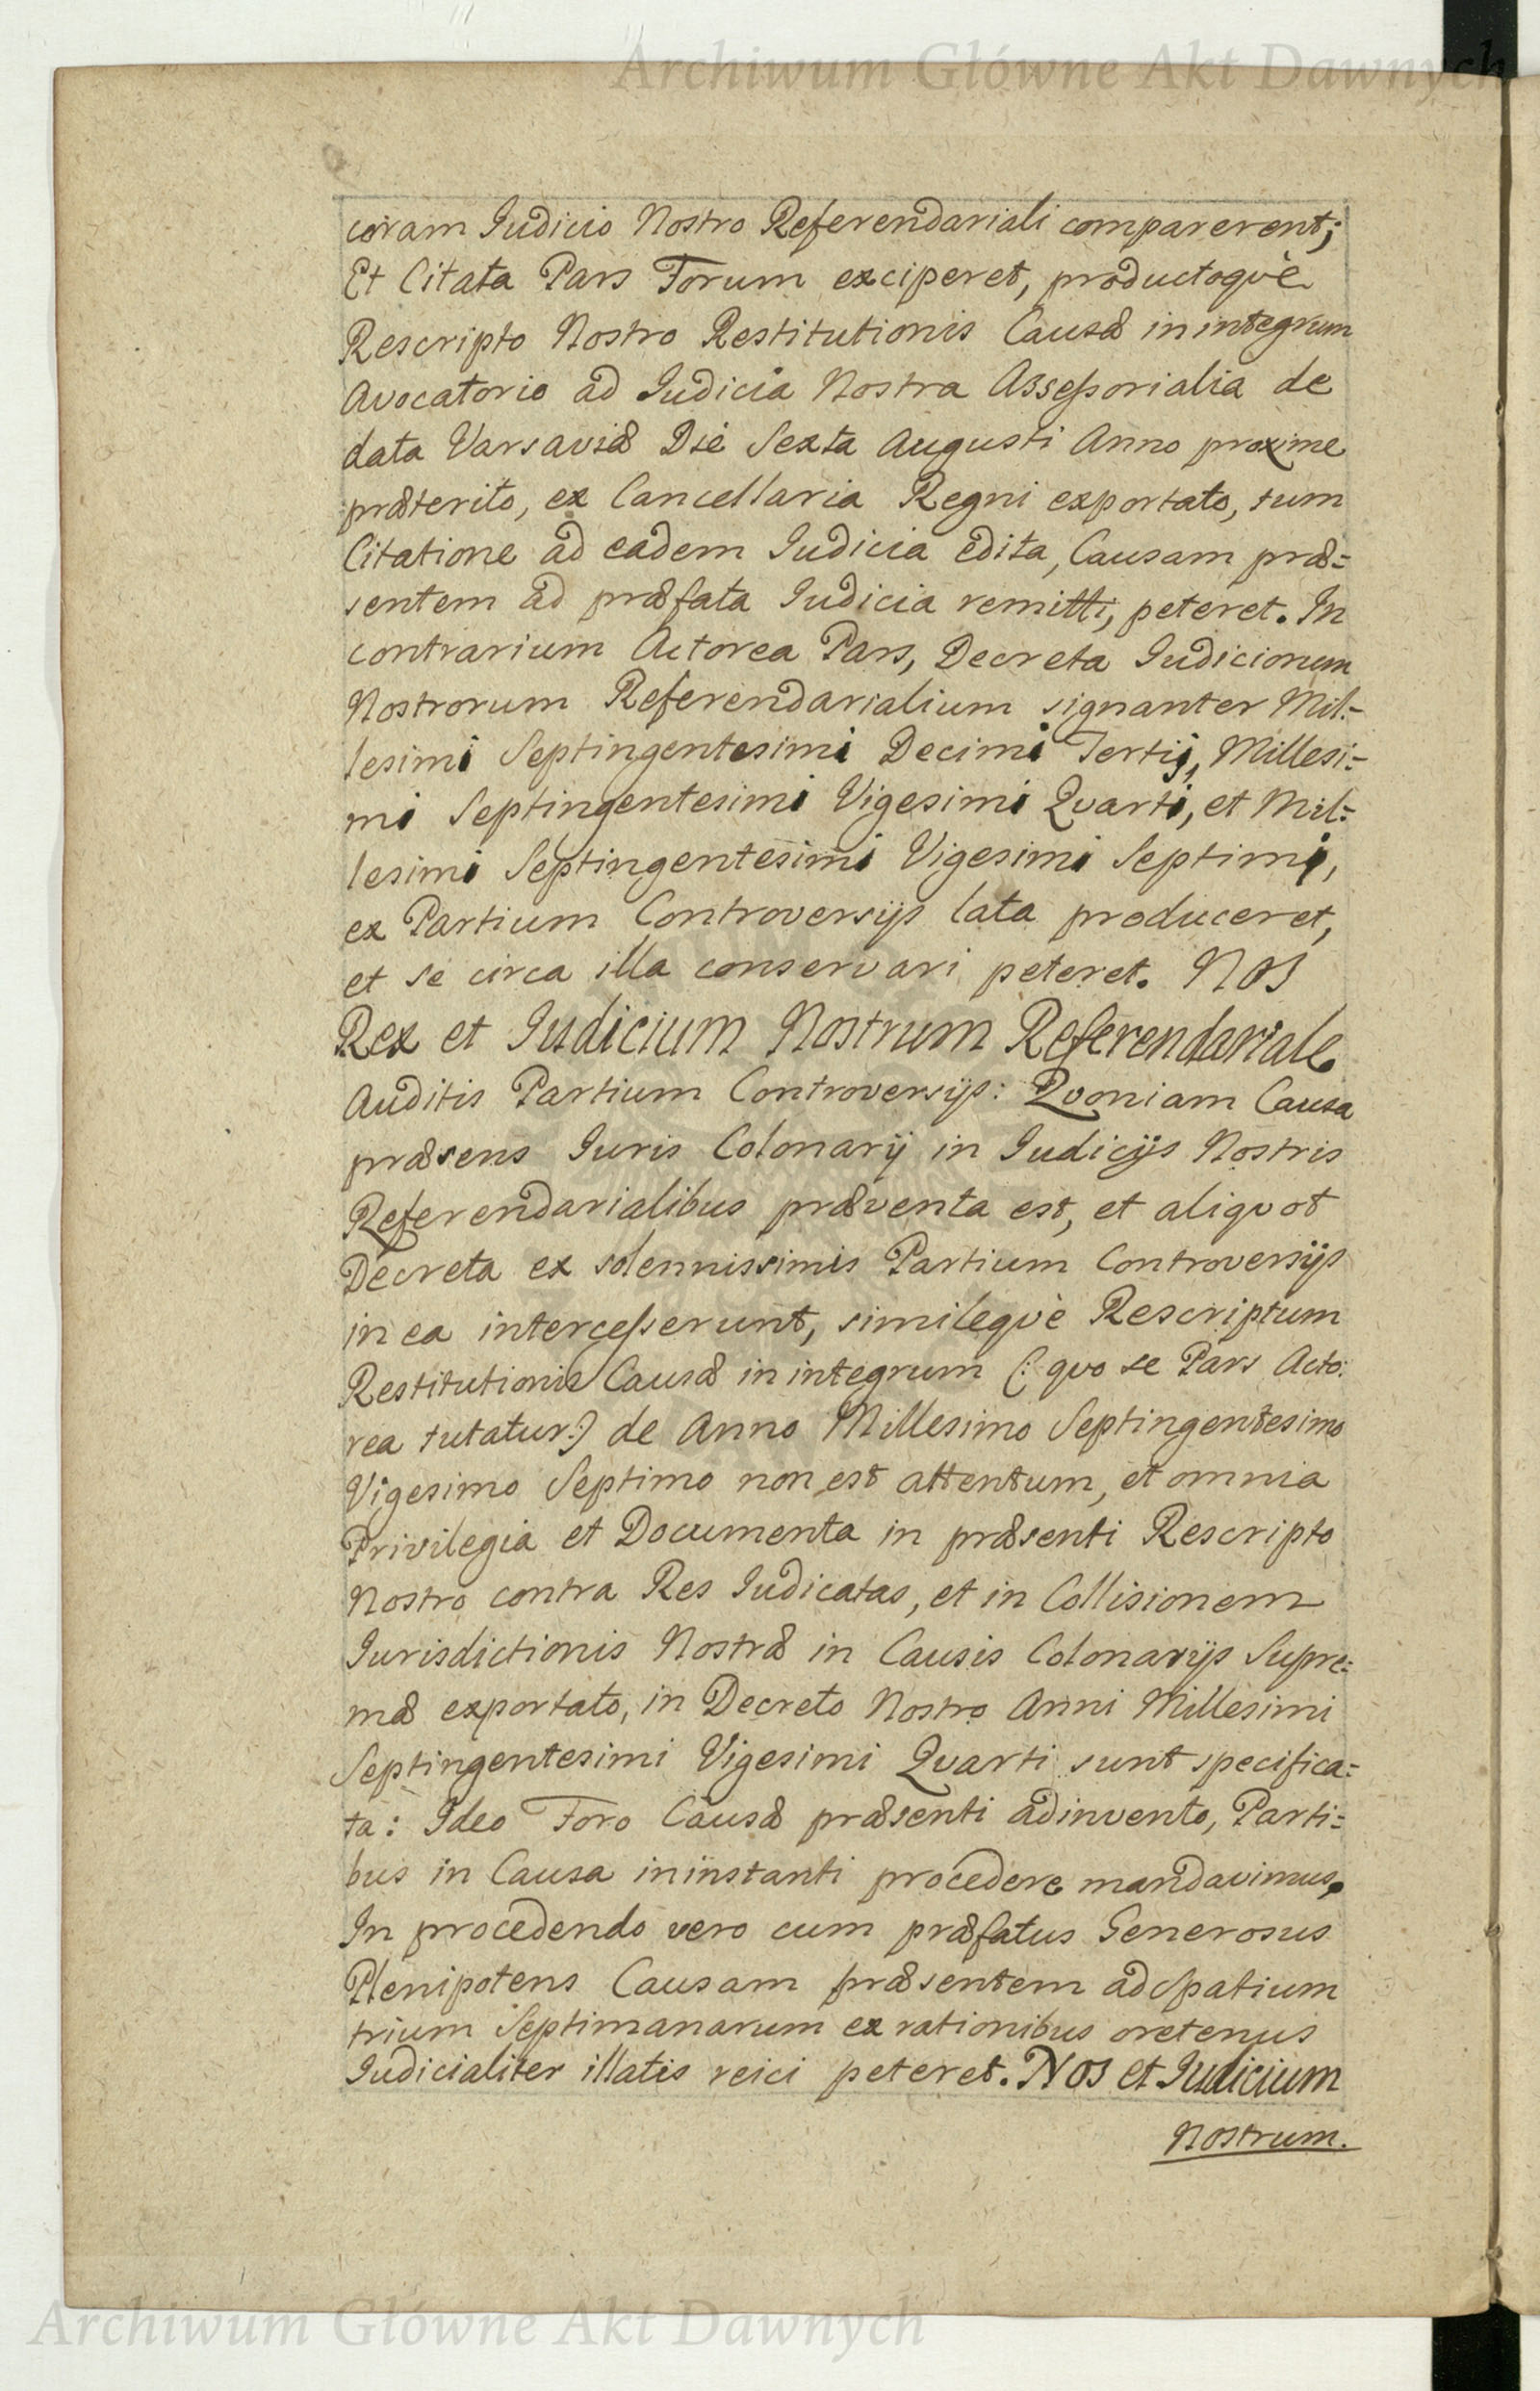 Archiwum Główne Akt Dawnych
coram Iudicio Nostro Referendariali comparerent;
Et Citata Pars Forum exciperet, productoqvè
Rescripto Nostro Restitutionis Causæ in integrum
Avocatorio ad Iudicia Nostra Assessorialia de
data Varsaviæ Die Sexta Augusti Anno proxime
præterito, ex Cancellaria Regni exportato, tum
Citatione ad eadem Iudicia edita, Causam præ=
sentem ad præfata Iudicia remitti, peteret. In
contrarium Actorea Pars, Decreta Iudiciorum
Nostrorum Referendarialium signanter Mil=
lesimi Septingentesimi Decimi Tertij, Millesi=
mi Septingentesimi Vigesimi Qvarti, et Mil=
lesimi Septingentesimi Vigesimi Septimi,
ex Partium Controversijs lata produceret,
et se circa illa conservari peteret. Nos
Rex et Iudicium Nostrum Referendariale
Auditis Partium Controversijs: Qvoniam Causa
præsens Iuris Colonarij in Iudicijs Nostris
Referendarialibus præventa est, et aliqvot
Decreta ex solennissimis Partium Controversijs
in ea intercesserunt, simileqvè Rescriptum
Restitutionis Causæ in integrum (: qvo se Pars Acto:
rea tutatur:) de Anno Millesimo Septingentesimo
Vigesimo Septimo non est attentum, et omnia
Privilegia et Documenta in præsenti Rescripto
Nostro contra Res Iudicatas, et in Collisionem
Iurisdictionis Nostræ in Causis Colonarijs Supre=
mæ exportato, in Decreto Nostro Anni Millesimi
Septingentesimi Vigesimi Qvarti sunt specifica=
ta: Ideo Foro Causæ præsenti adinvento, Parti=
bus in Causa in instanti procedere mandavimus,
In procedendo vero cum præfatus Generosus
Plenipotens Causam præsentem ad spatium
trium Septimanarum ex rationibus oretenus
Iudicialiter illatis reici peteret. Nos et Iudicium
Nostrum.
Archiwum Główne Akt Dawnych